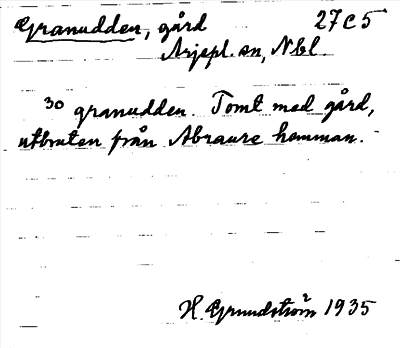 Granudden, gård 27C5
Arjepl. sn, Nbl.
30 granudden. Tomt med gård,
utbruten från Abraure hemman.
H. Grundström 1935